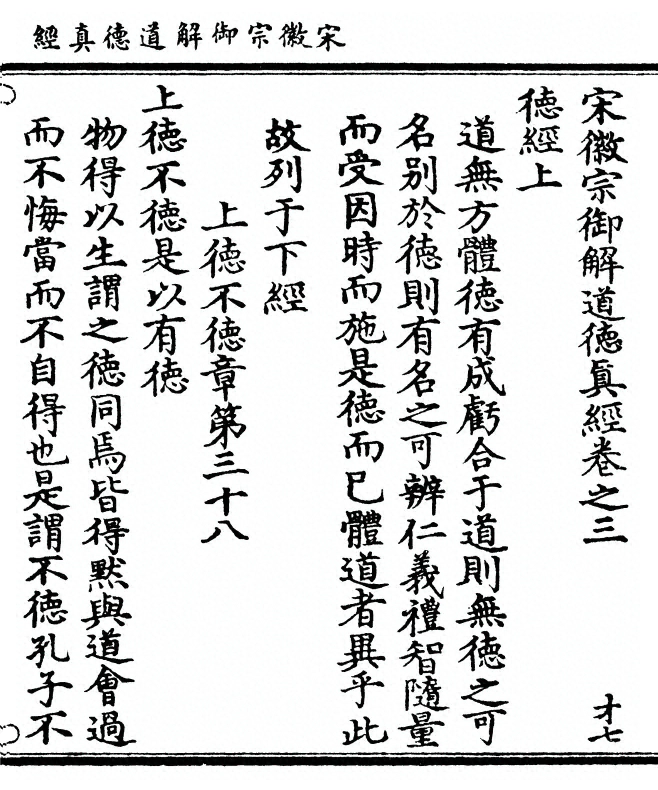 宋徽宗御解道德真經
宋徽宗御解道德眞經卷之三
才七
德經上
道無方體德有成虧合于道則無德之可
名别於德則有名之可辨仁義禮智隨量
而受因時而施是德而已體道者異乎此
故列于下經
上德不德章第三十八
上德不德是以有德
物得以生謂之德同焉皆得默與道會過
而不悔當而不自得也是謂不德孔子不